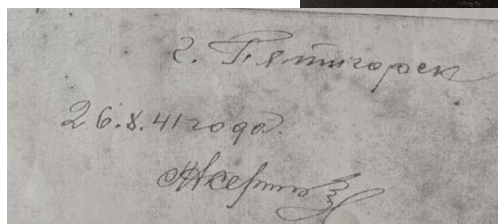 г. Пятигорск
26.8.41 года.